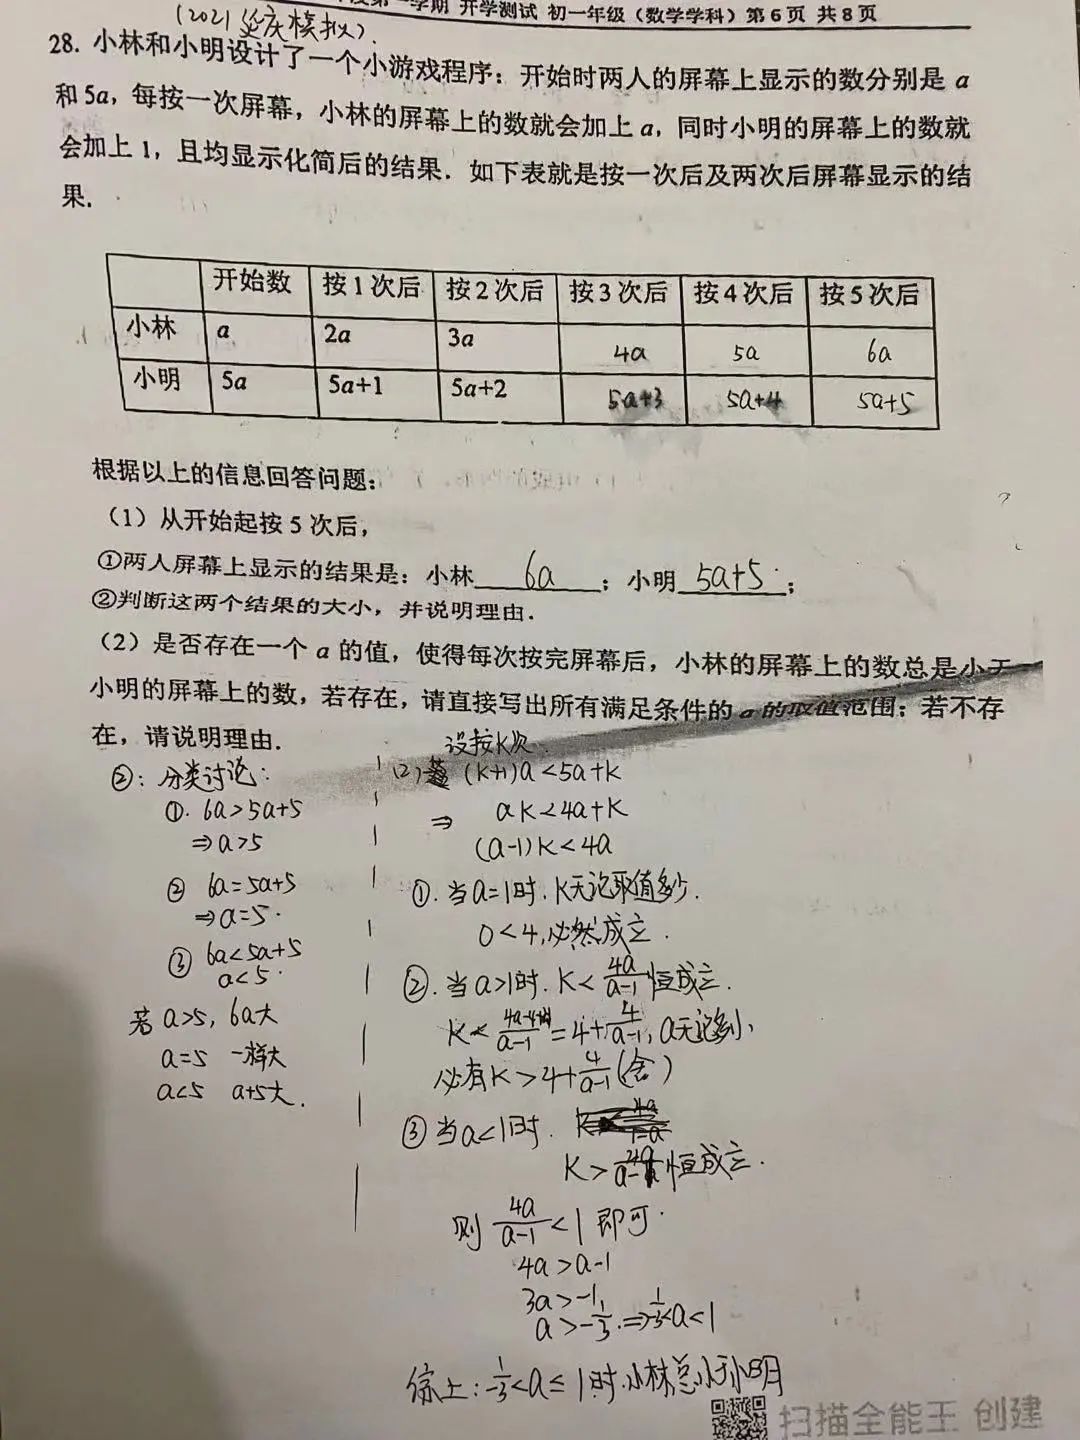 学期 开学测试 初一年级（数学学科）第6页 共8页
（2021延庆模拟）.
28. 小林和小明设计了一个小游戏程序：开始时两人的屏幕上显示的数分别是 a
和 5a，每按一次屏幕，小林的屏幕上的数就会加上 a，同时小明的屏幕上的数就
会加上 1，且均显示化简后的结果．如下表就是按一次后及两次后屏幕显示的结
果．
开始数 按1次后 按2次后 按3次后 按4次后 按5次后
小林 a 2a 3a 4a 5a 6a
小明 5a 5a+1 5a+2 5a+3 5a+4 5a+5
根据以上的信息回答问题：
（1）从开始起按 5 次后，
①两人屏幕上显示的结果是：小林 6a ；小明 5a+5 ；
②判断这两个结果的大小，并说明理由．
（2）是否存在一个 a 的值，使得每次按完屏幕后，小林的屏幕上的数总是小于
小明的屏幕上的数，若存在，请直接写出所有满足条件的 a 的取值范围；若不存
在，请说明理由．
②：分类讨论：
①. 6a>5a+5
⇒a>5
② 6a=5a+5
⇒a=5.
③ 6a<5a+5
a<5.
若 a>5, 6a大
a=5 一样大
a<5 a+5大.
设按K次.
(2) (K+1)a<5a+K
⇒ aK<4a+K
(a-1)K<4a
①. 当a=1时. K无论取值多少.
0<4,必然成立.
②. 当a>1时. K< 4a/(a-1) 恒成立.
=4+4/(a-1), a无论多小,
必有K>4+4/(a-1)(舍)
③ 当a<1时.
K> 恒成立.
则 4a/(a-1) <1 即可.
4a>a-1
3a>-1
a>-1/3.⇒-1/3<a<1
综上: -1/3<a≤1时.小林总小于小明
扫描全能王 创建